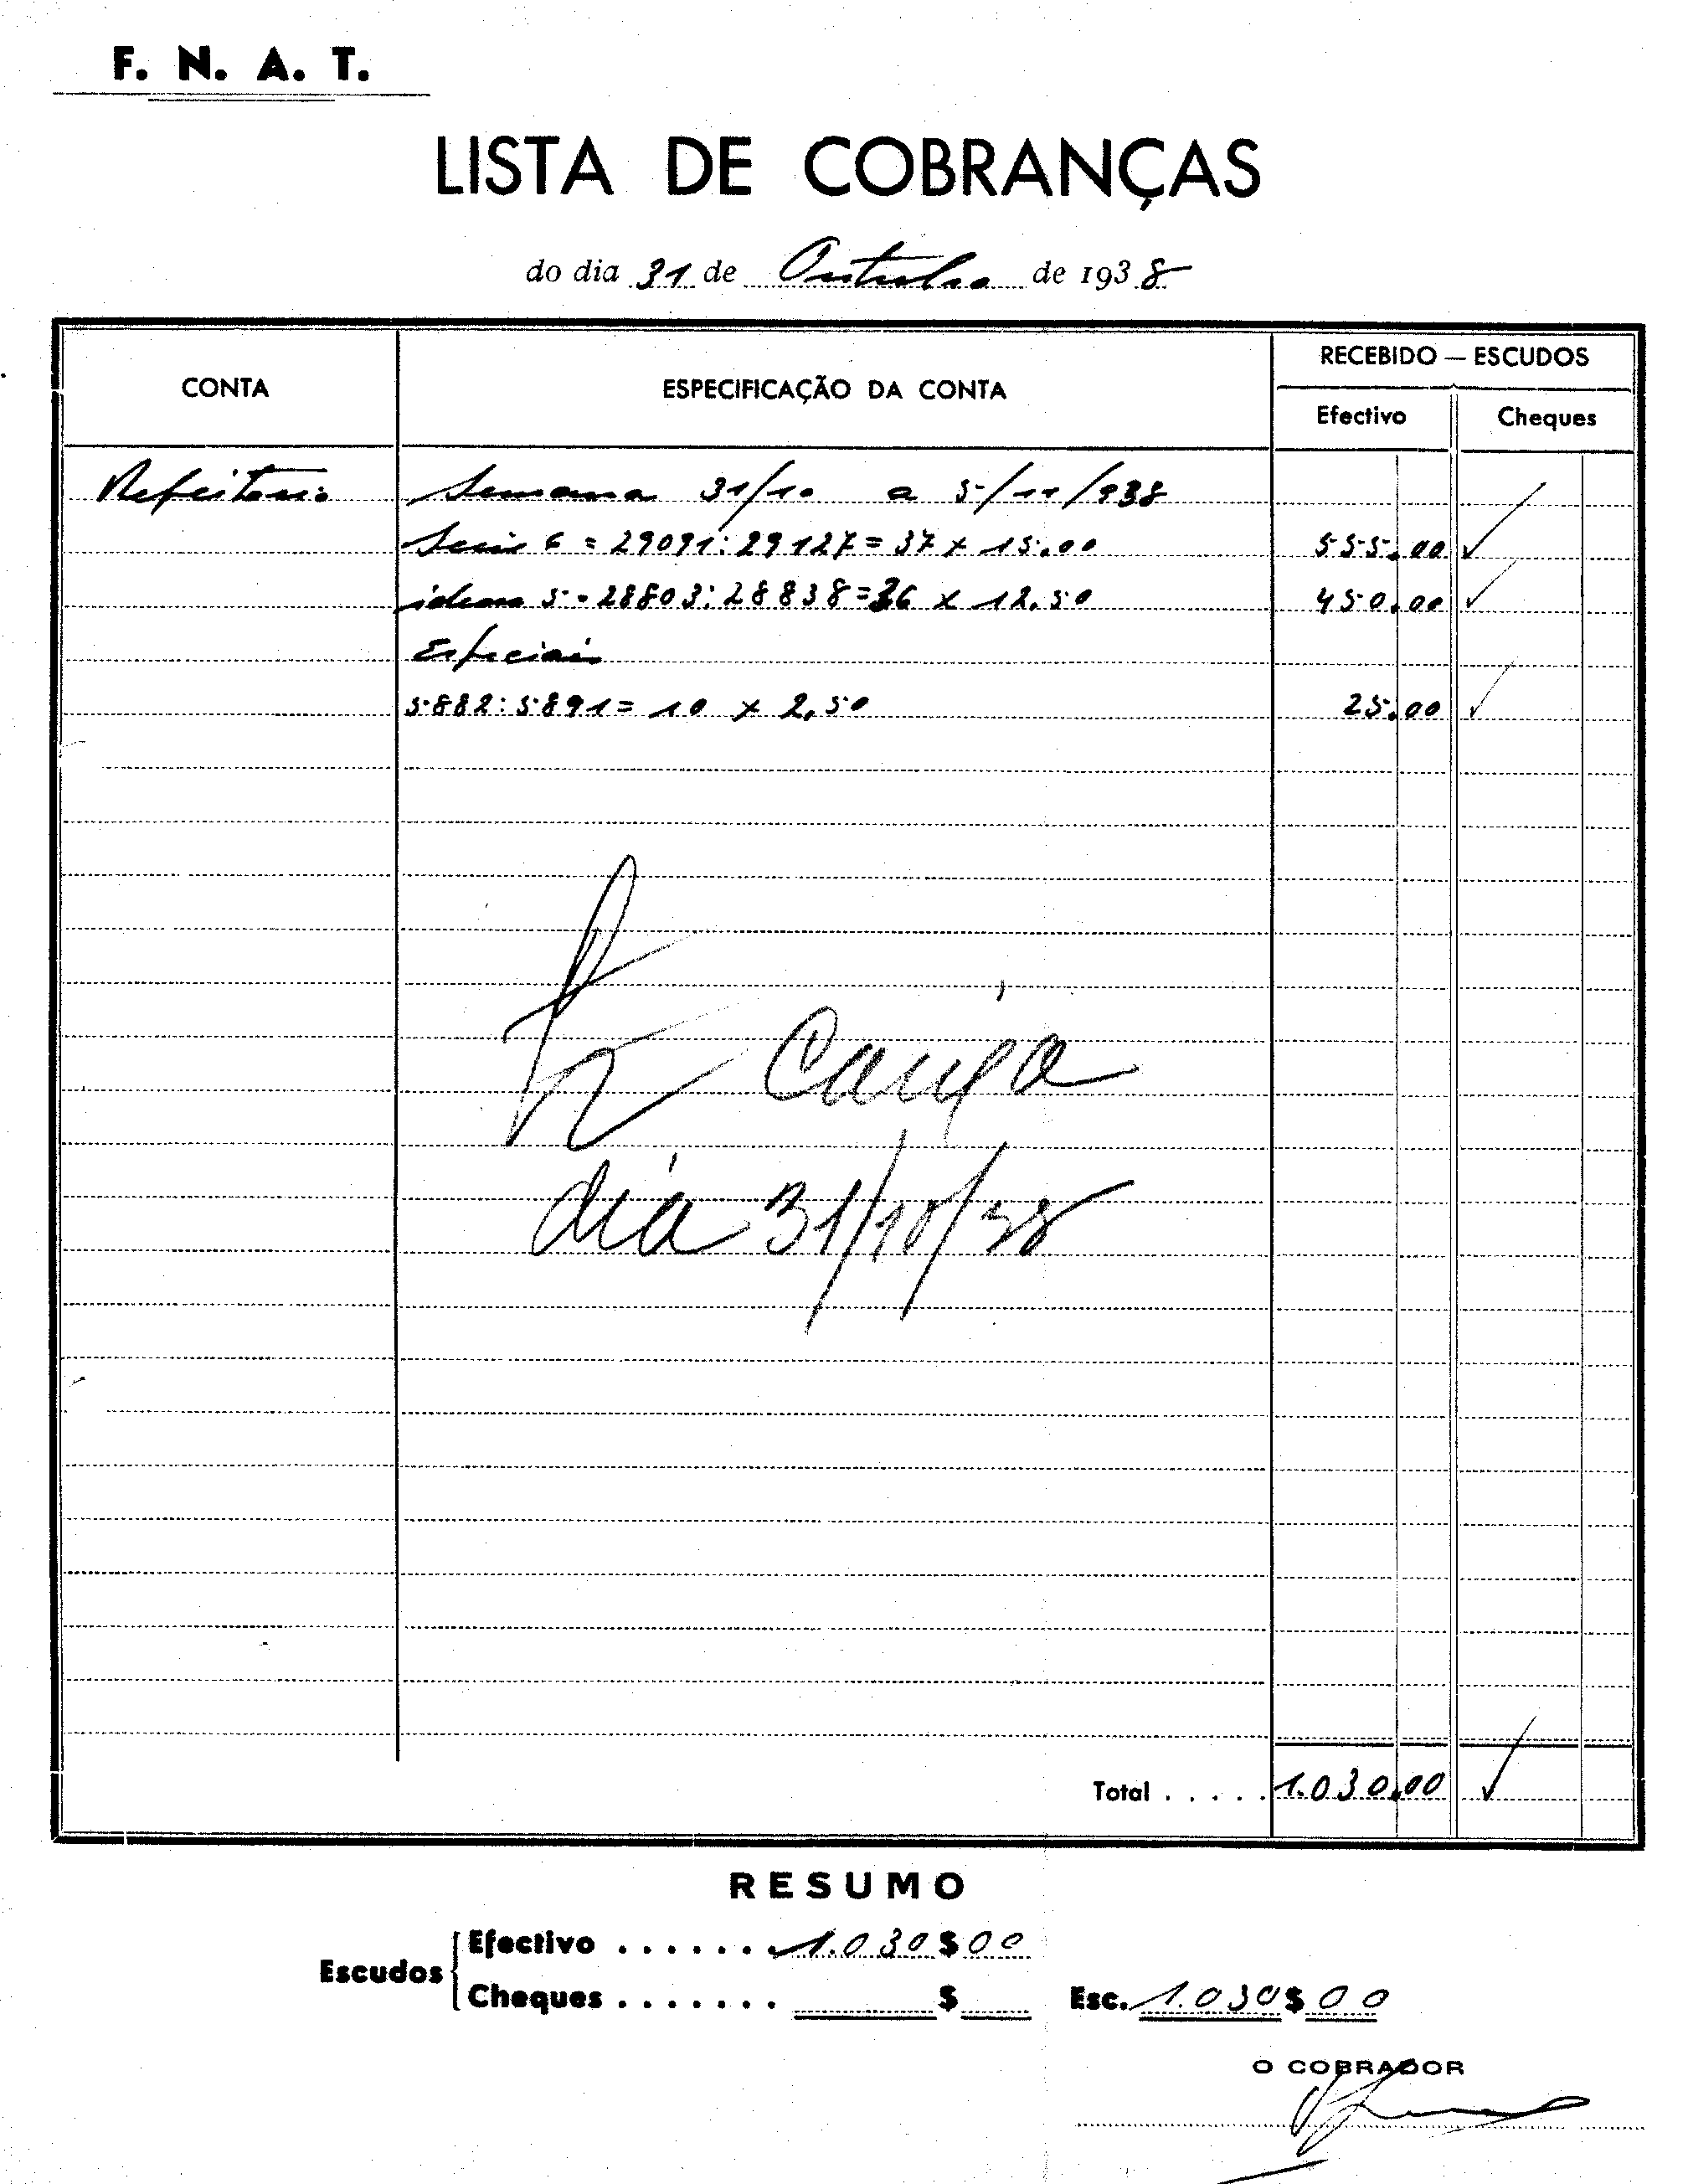 F. N. A. T.
LISTA DE COBRANÇAS
do dia 31 de Outubro de 1938
CONTA
ESPECIFICAÇÃO DA CONTA
RECEBIDO — ESCUDOS
Efectivo
Cheques
Refeitorio Semana 31/10 a 5/11/938
Serie 6 = 29091:29127 = 37 x 15.00 555.00
idem 5 = 28803:28838 = 36 x 12.50 450.00
Especiais
5882:5891 = 10 x 2,50 25.00
Caixa
dia 31/10/38
Total . . . . . 1.030.00
RESUMO
Escudos
Efectivo . . . . . . . 1.030$00
Cheques . . . . . . . $
Esc. 1.030$00
O COBRADOR